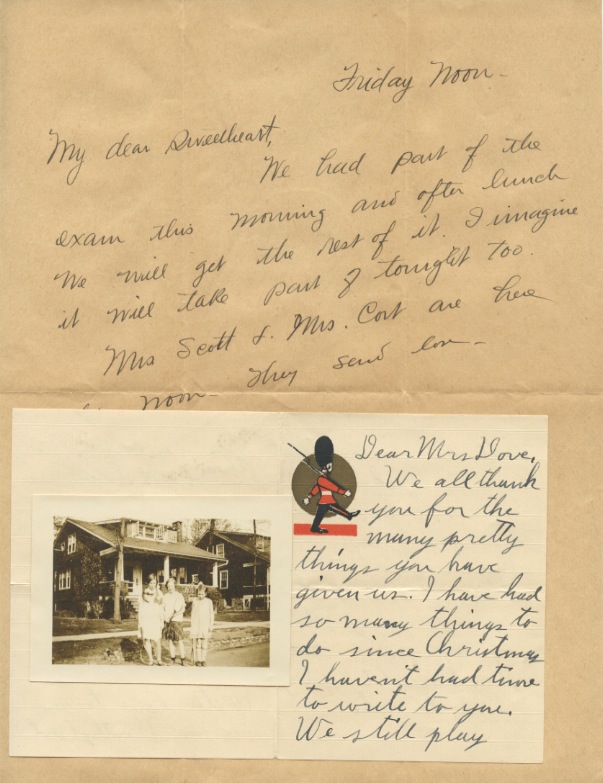 Friday Noon -
My dear Sweetheart,
We had part of the
exam this morning and after lunch
We will get the rest of it. I imagine
it will take part of tonight too.
Mrs Scott & Mrs. Cort are here
They send lov -
noon -
Dear Mrs Dove,
We all thank
you for the
many pretty
things you have
given us. I have had
so many things to
do since Christmas
I haven't had time
to write to you.
We still play